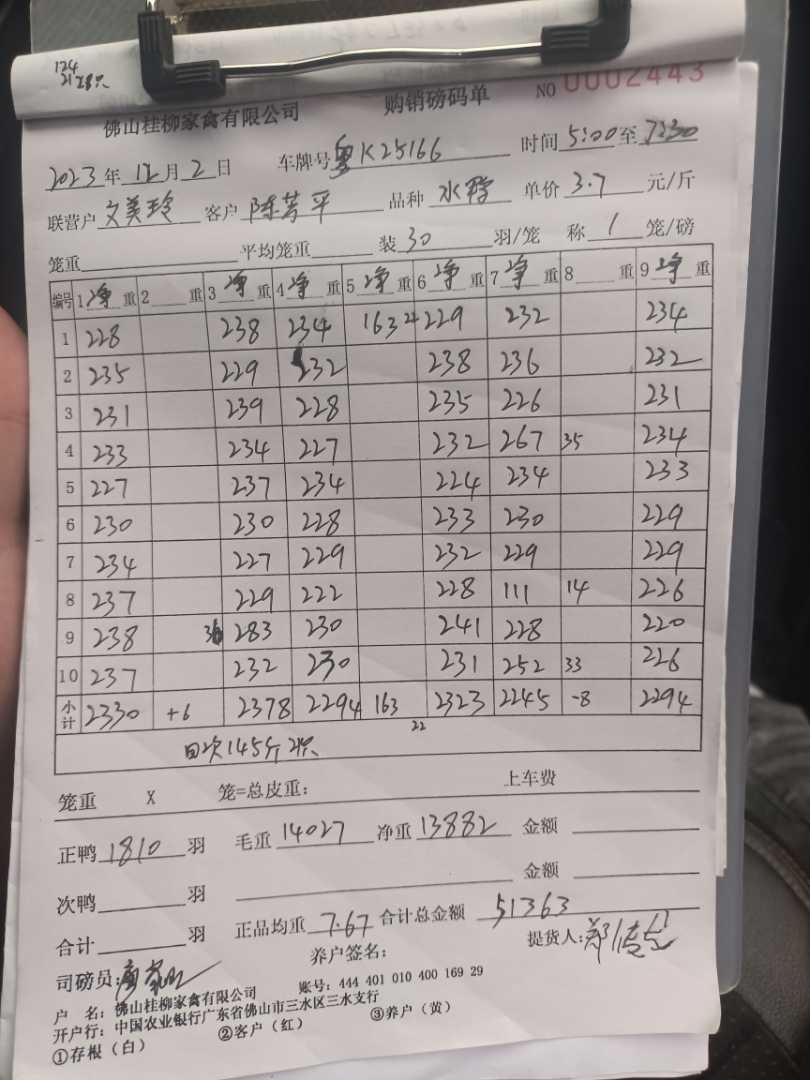 124
21 28只
佛山桂柳家禽有限公司 购销磅码单 NO 0002443
2023年12月2日 车牌号粤K25166 时间5:00至7:30
联营户文美玲 客户陈芳平 品种水鸭 单价3.7元/斤
笼重 平均笼重 装30羽/笼 称1笼/磅
编号 1净重 2重 3净重 4净重 5净重 6净重 7净重 8重 9净重
1 228 238 234 163 4 229 232 234
2 235 229 232 238 236 232
3 231 239 228 235 226 231
4 233 234 227 232 267 35 234
5 227 237 234 224 234 233
6 230 230 228 233 230 229
7 234 227 229 232 229 229
8 237 229 222 228 111 14 226
9 238 36 283 230 241 228 220
10 237 232 230 231 252 33 226
小计 2330 +6 2378 2294 163 2323 2245 -8 2294
22
145斤
笼重 X 笼=总皮重: 上车费
正鸭1810羽 毛重14027 净重13882 金额
次鸭 羽 金额
合计 羽 正品均重7.67 合计总金额51363
司磅员: 养户签名: 提货人:郑
户 名: 佛山桂柳家禽有限公司 账号: 444 401 010 400 169 29
开户行: 中国农业银行广东省佛山市三水区三水支行
①存根（白） ②客户（红） ③养户（黄）